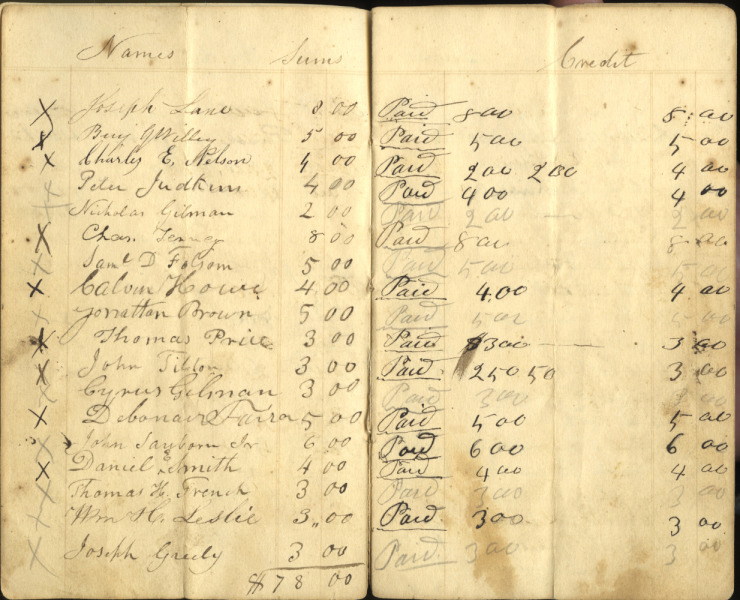 Names Sums Credit
Joseph Lane 8 00 Paid 8 00 8 00
Benj G Willey 5 00 Paid 5 00 5 00
Charles E. Nelson 4 00 Paid 2 00 2 00 4 00
Peter Judkins 4 00 Paid 4 00 4 00
Nicholas Gilman 2 00 Paid 2 00 2 00
Chas. 8 00 Paid 8 00 8 00
Saml D Folsom 5 00 Paid 5 00
Calvin Howe 4 00 Paid 4 00 4 00
Jonathan Brown 5 00 Paid 5 00 5 00
Thomas Price 3 00 Paid 3 00 3 00
John Tilton 3 00 Paid. 2 50 50 3 00
Cyrus Gilman 3 00 Paid 3 00 3 00
5 00 Paid 5 00 5 00
John Sanborn Jr 6 00 Paid 6 00 6 00
Daniel Smith 4 00 Paid 4 00 4 00
Thomas H. French 3 00 Paid 3 00 3
Wm H. Leslie 3,, 00 Paid. 3 00 3 00
Joseph Greely 3 00 Paid. 3 00 3 00
$78 00